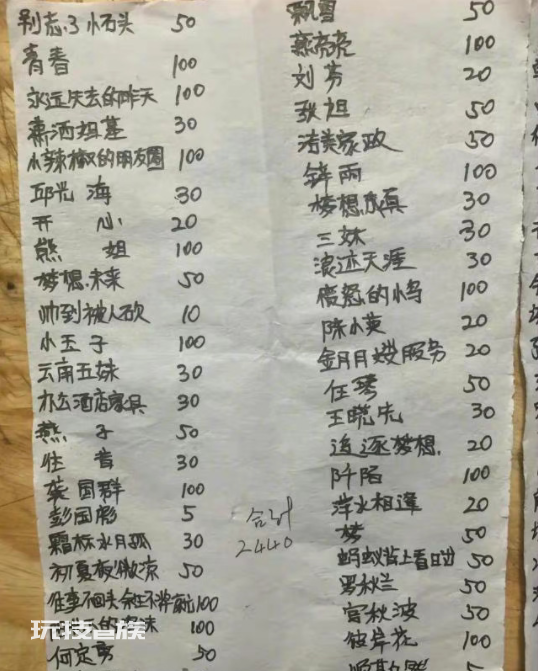 别忘了小石头 50
青春 100
永远失去的昨天 100
潇洒姐基 30
小辣椒的朋友圈 100
邱光海 30
开心 20
熊姐 100
梦想.未来 50
帅到被人砍 10
小玉子 100
云南五妹 30
办公酒店家具 30
燕子 50
往昔 30
龚国群 100
彭国彪 5
霜林水月孤 30
初夏夜微凉 50
往事不回头余生不将就 100
的 妹 100
何定勇 50
飘雪 50
燕亮亮 100
刘芳 20
张姐 50
洁美家政 50
钟雨 100
梦想成真 30
三妹 30
浪迹天涯 30
愤怒的小鸟 100
陈小英 20
金月月嫂服务 20
任琴 50
王晓先 30
追逐梦想. 20
阡陌 100
萍水相逢 20
梦 50
蚂蚁背上看日出 50
罗秋兰 50
富秋波 50
彼岸花 100
合计
2440
玩技营族